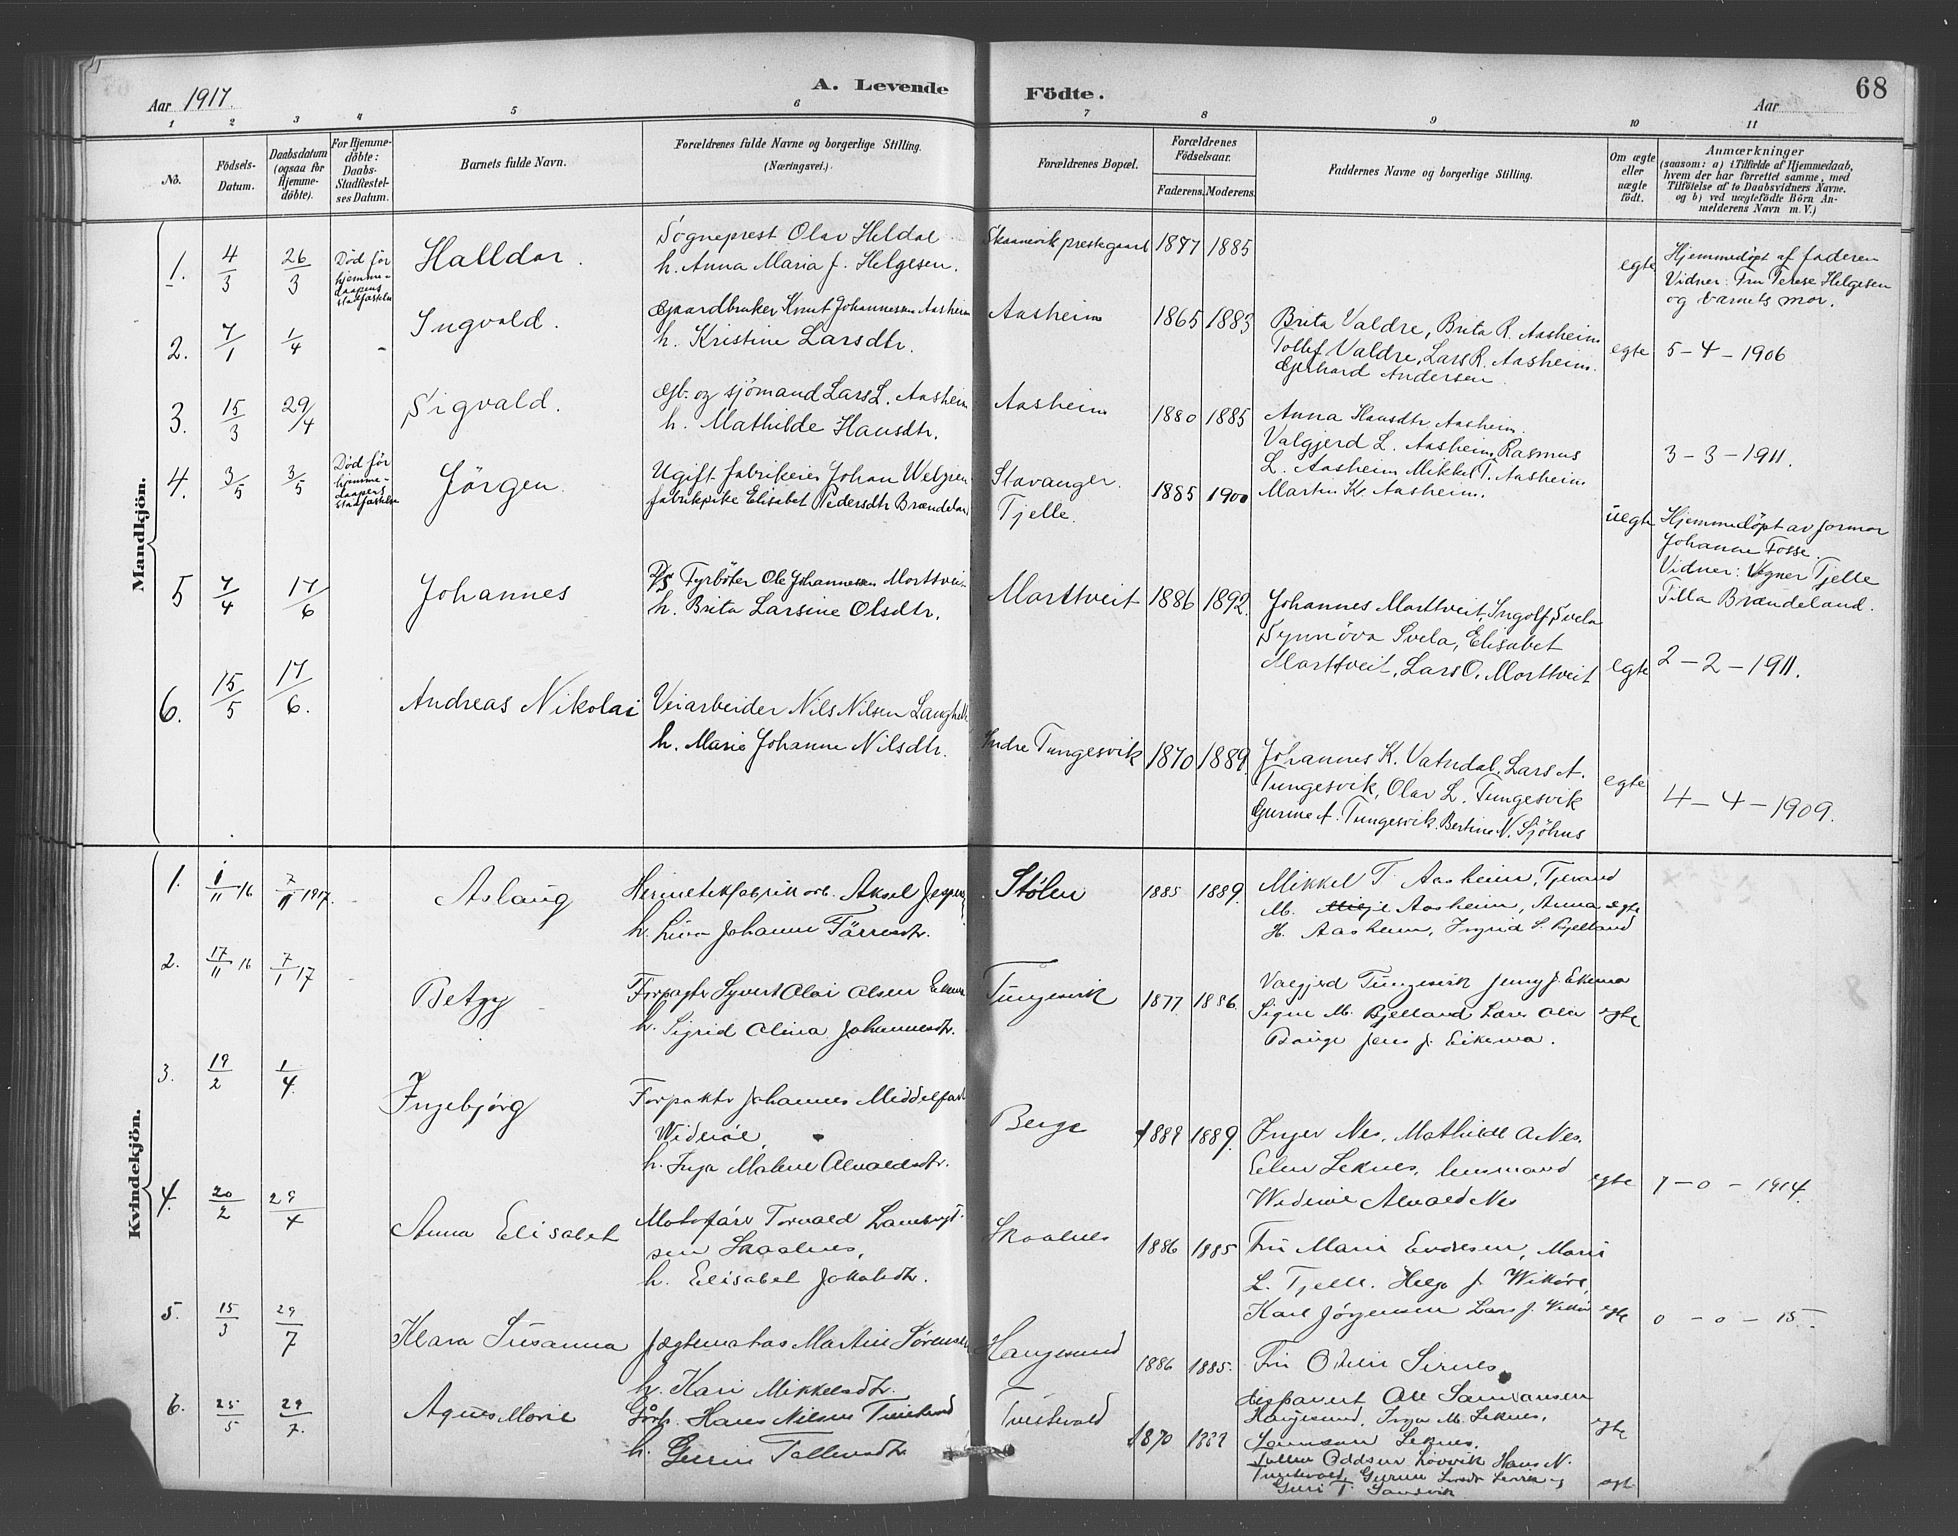 Aar 1917.
A. Levende
Födte.
Aar
68
1 2 3 4 5 6 7 8 9 10 11
No.
Födsels-Datum.
Daabsdatum (ogsaa för Hjemme-döbte).
For Hjemme-döbte: Daabs-Stadfæstel-ses Datum.
Barnets fulde Navn.
Forældrenes fulde Navne og borgerlige Stilling.
(Næringsvei.)
Forældrenes Bopæl.
Forældrenes Födselsaar.
Faderens. Moderens.
Faddernes Navne og borgerlige Stilling.
Om ægte eller uægte födt.
Anmærkninger
(saasom: a) i Tilfælde af Hjemmedaab,
hvem der har forrettet samme, med
Tilföielse af to Daabsvidners Navne.
og b) ved uægtefödte Börn An-
melderens Navn m. V.)
Mandkjön.
1. 4/3 26/3 Död för hjemme-daapens stadfæstelse Halldor.
Sogneprest Olav Heldal
h. Anna Maria f. Helgesen.
Skaanevik prestegaard 1877 1885
egte
Hjemmedøpt af faderen
Vidner: Fru Terese Helgesen
og barnets mor.
2. 7/1 1/4 - Ingvald.
Gaardbruker Knut Johannessen Aasheim
h. Kristine Larsdtr.
Aasheim 1865 1883
Brita Valdre, Brita R. Aasheim
Tollef Valdre, Lars R. Aasheim.
Gerhard Andersen.
egte 5-4-1906
3. 15/3 29/4 Sigvald.
Gb. og sjömand Lars L. Aasheim
h. Mathilde Hansdtr.
Aasheim 1880 1885
Anna Hansdtr Aasheim.
Valgjerd L. Aasheim, Rasmus
L. Aasheim Mikkel T. Aasheim
Martin K. Aasheim.
3-3-1911.
4. 3/5 3/5 Död för hjemme-daapens stadfæstelse Jörgen.
Ugift fabrikeier Johan
fabrikpike Elisabet Pedersdtr Brændeland
Stavanger.
Tjelle.
1885 1900
uegte
Hjemmedøpt av farmor
Johanne Fosse.
Vidner: Tjelle
Tilla Brændeland.
5 7/4 17/6 Johannes
D/S Fyrböter Ole Johannessen Morttveit
h. Brita Larsine Olsdtr.
Morttveit 1886 1892.
Johannes Morttveit, Ingolf Svela
Synnöva Svela, Elisabet
Morttveit, Lars O. Morttveit
egte 2-2-1911.
6. 15/5 17/6. Andreas Nikolai
Veiarbeider Nils Nilsen
h. Marie Johanne Nilsdtr.
Indre Tungesvik 1870 1889.
Johannes K. Vatndal, Lars A.
Tungesvik, Olav L. Tungesvik
Gurine A. Tungesvik. Bertine N. Sjöhus
egte 4-4-1909.
Kvindekjön.
1. 1/11 16 7/1 1917. Aslaug
Hermetikfabrik arb. Aksel
h. Johanne
Stølen 1885 1889.
Mikkel T. Aasheim,
M. Aasheim, Anna
H. Aasheim, Ingrid S. Kjelland
egte
2. 17/11 16 7/1 17 Betzy
Forpagter Syvert Olai Olsen
h. Sigrid Olina Johannesdtr.
Tungesvik 1877. 1886.
Valgjerd Tungesvik Jenny J. Eikemo
Signe M. Bjelland Lars Olai
Jens J. Eikemo.
egte
3. 19/2 1/4. Ingebjørg
Forpakter Johannes
Widerøe,
h. Inga Malene
Berge 1889 1889.
Inger Nes, Mathilde A. Nes.
Elen Leknes, lensmand
Widerøe Nes
egte 7-0-1914.
4. 20/2 29/4 Anna Elisabet
Motorfører Torvald
sen Skaalnes,
h. Elisabet Jakobsdtr.
Skaalnes 1886 1885
Fru Marie Endresen, Marie
L. Tjelle. Helge J. Wikøre,
Karl Jørgensen Lars J.
egte 0-0-15
5. 15/3 29/7 Klara Susanna
Jægtematros Martin Sørensen
h. Kari Mikkelsdtr.
Haugesund 1886 1885.
Fru Sirnes
Ole
Haugesund, Inga M. Leknes,
Leknes.
egte
6. 25/5 29/7. Agnes Marie
Gbr. Hans Nilsen Tveitevold
h. Guri
Tveitevold 1870
Oddsen Hans N.
Tveitevold, Gurine
Guri T. Sandvik
egte